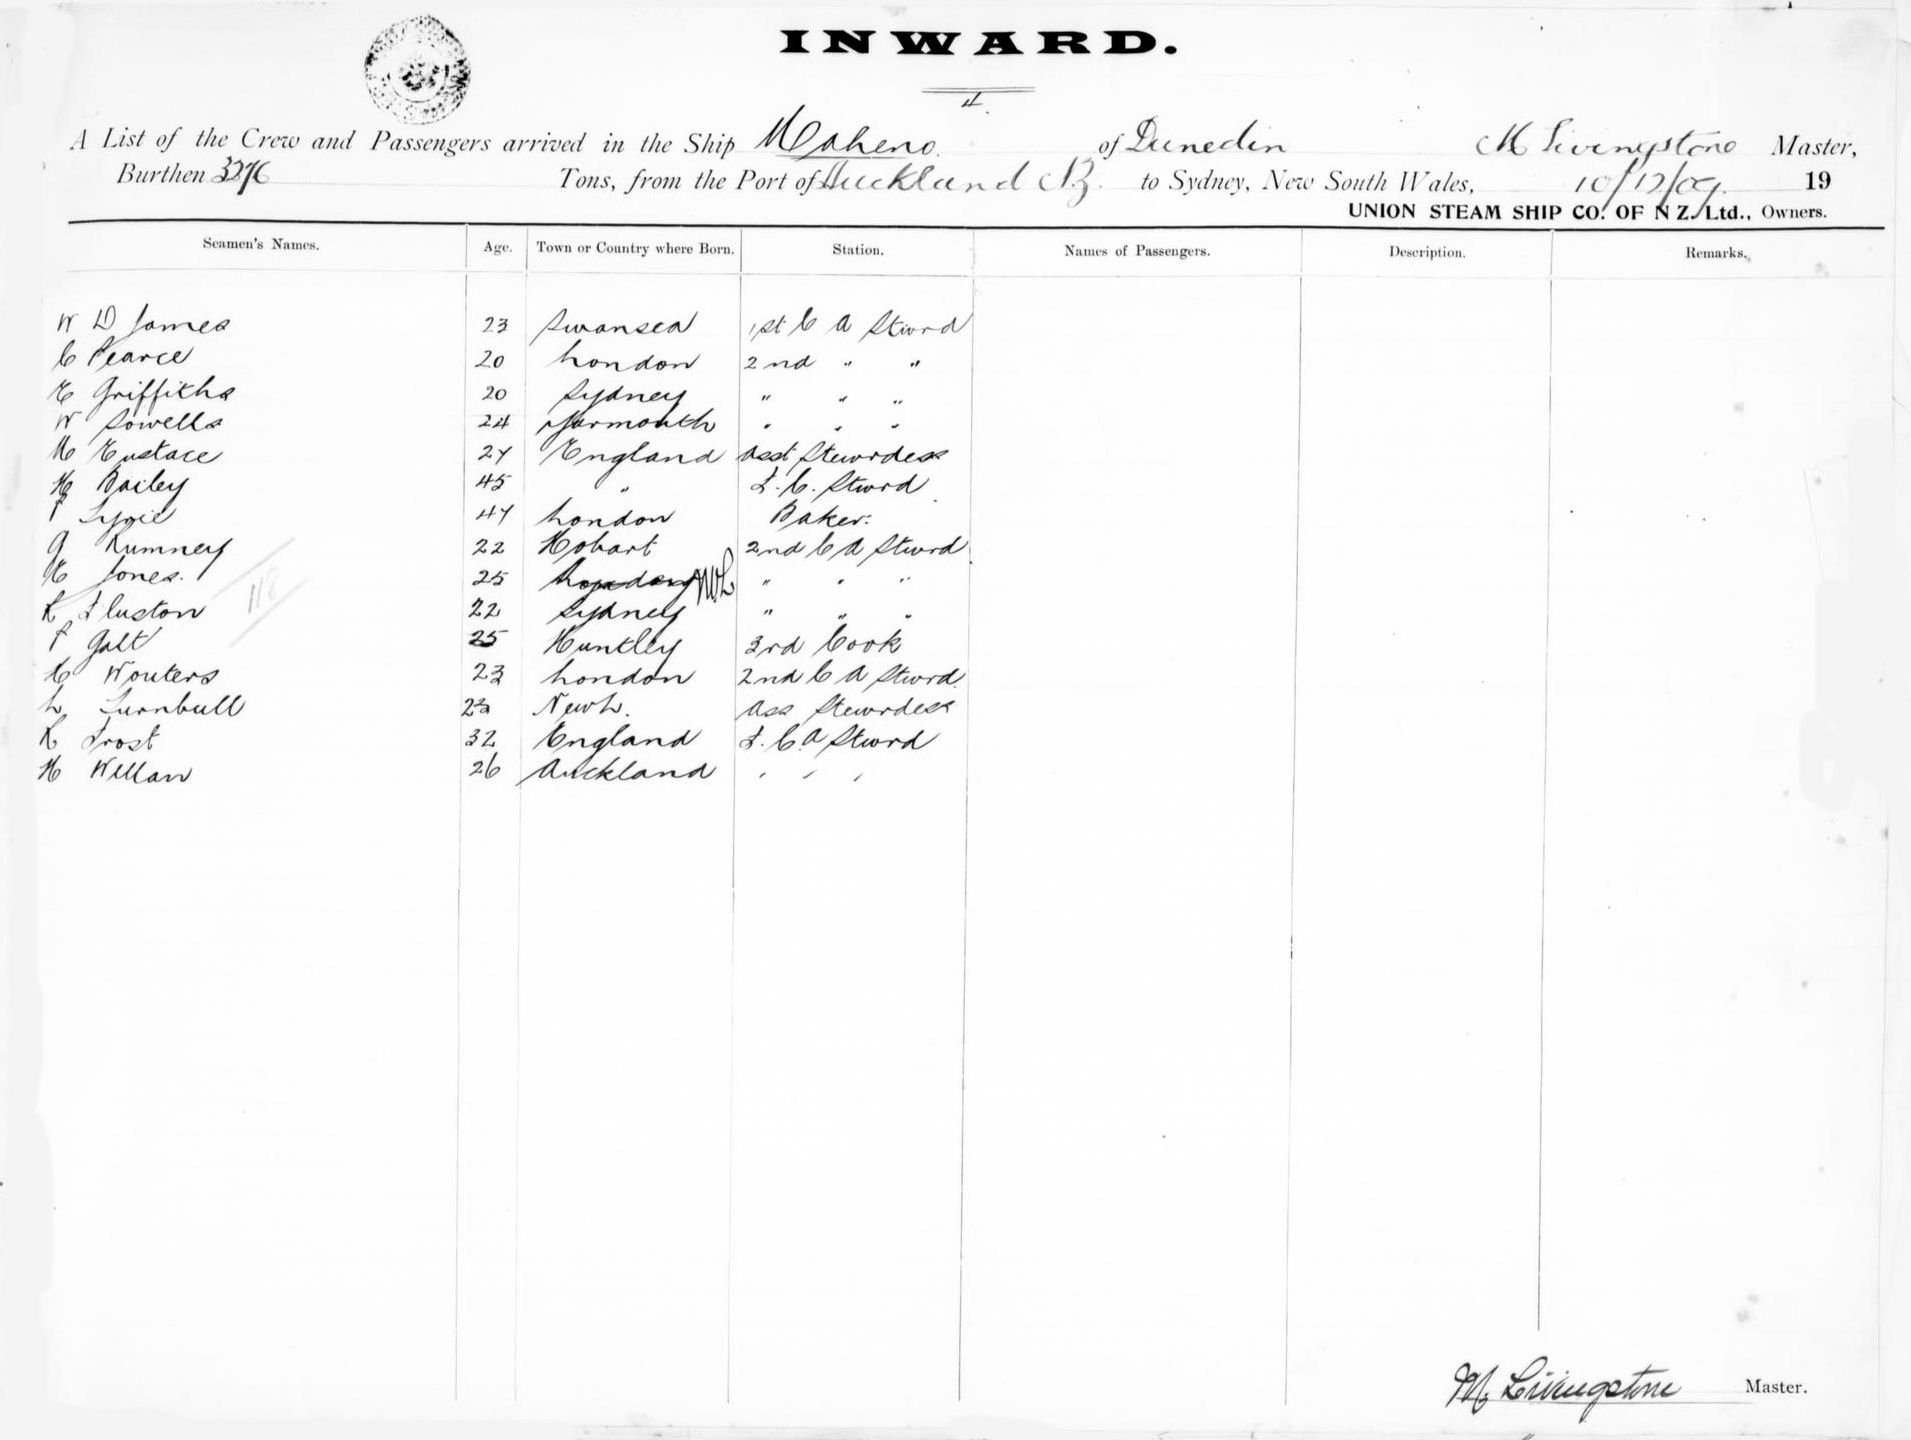 INWARD.
4.
A List of the Crew and Passengers arrived in the Ship Maheno. of Dunedin M Livingstone Master,
Burthen 3276 Tons, from the Port of Auckland N.Z. to Sydney, New South Wales, 10/12/09. 19
UNION STEAM SHIP CO. OF N Z. Ltd., Owners.
Seamen's Names. Age. Town or Country where Born. Station. Names of Passengers. Description. Remarks.
W D James 23 Swansea 1st C A Stwrd
C Pearce 20 London 2nd " "
E Griffiths 20 Sydney " " "
W Sowells 24 Yarmouth " " "
M Eustace 27 England Asst Stewrdess
H Bailey 45 " F. C. Stwrd
47 London Baker.
G Rumney 22 Hobart 2nd C A Stwrd
E Jones. 25 " " "
22 Sydney " " "
P Galt 25 Huntley 3rd Cook
C Wouters 23 London 2nd C A Stwrd.
L Turnbull Ass Stewrdess
K Frost 32 England F. C. A Stwrd
H Willan 26 Auckland " " "
M Livingstone Master.